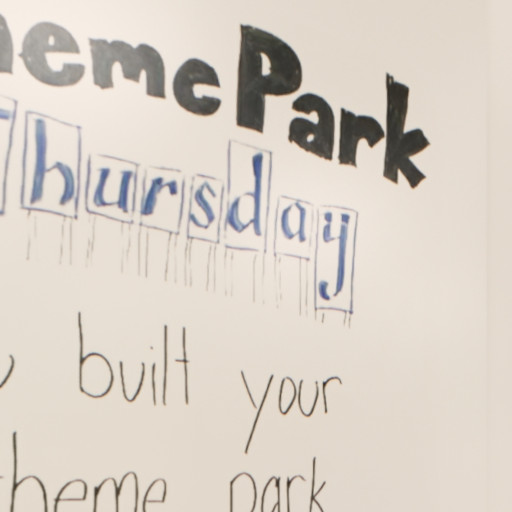 heme Park
Thursday
built your
theme park